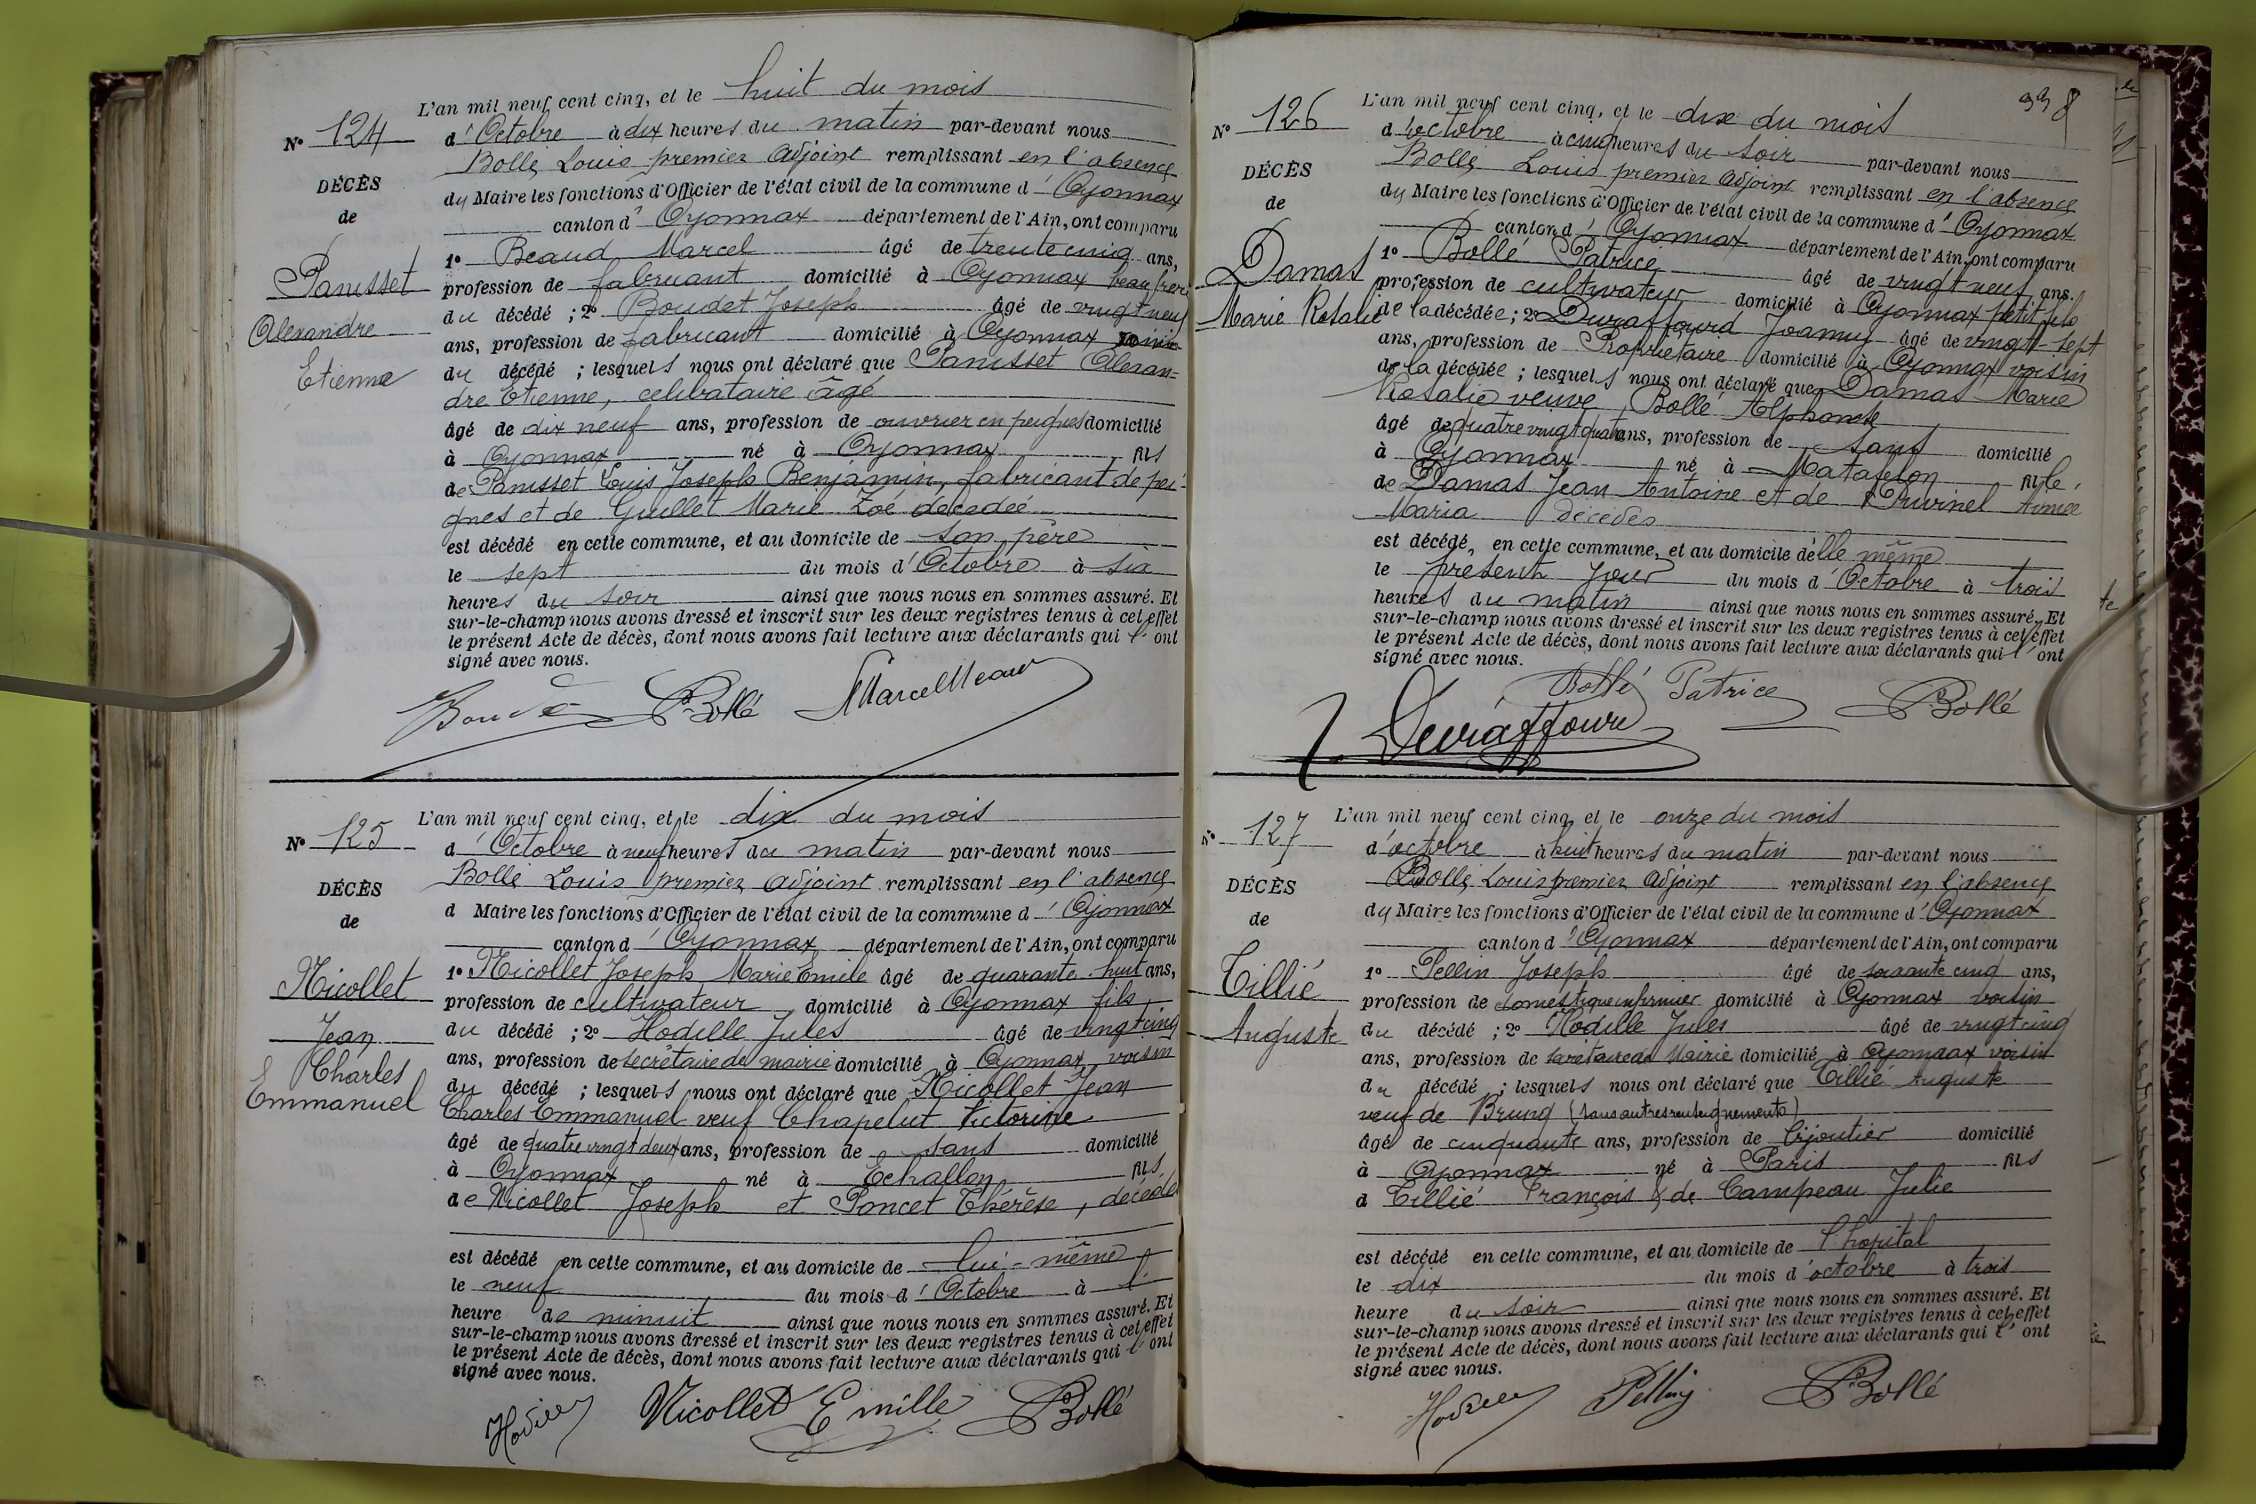 L'an mil neuf cent cinq, et le huit du mois
N° 124
d'Octobre à dix heures du matin par-devant nous
Bollé Louis premier adjoint remplissant en l'absence
DÉCÈS
du Maire les fonctions d'Officier de l'état civil de la commune d'Oyonnax
de
canton d'Oyonnax département de l'Ain, ont comparu
1° Beaud Marcel âgé de trente cinq ans,
Panisset
profession de fabricant domicilié à Oyonnax beau frère
du décédé ; 2° Boudet Joseph âgé de vingt neuf
Alexandre
ans, profession de fabricant domicilié à Oyonnax voisin
Etienne
du décédé ; lesquels nous ont déclaré que Panisset Alexan-
dre Etienne, célibataire âgé
âgé de dix neuf ans, profession de ouvrier en peignes domicilié
à Oyonnax né à Oyonnax fils
de Panisset Louis Joseph Benjamin, fabricant de pei-
gnes et de Guillet Marie Zoé décédée
est décédé en cette commune, et au domicile de son père
le sept du mois d'Octobre à six
heures du soir ainsi que nous nous en sommes assuré. Et
sur-le-champ nous avons dressé et inscrit sur les deux registres tenus à cet effet
le présent Acte de décès, dont nous avons fait lecture aux déclarants qui l'ont
signé avec nous.
Boudet Bollé Marcel Beaud
L'an mil neuf cent cinq, et le dix du mois
N° 125
d'Octobre à neuf heures du matin par-devant nous
Bollé Louis premier adjoint remplissant en l'absence
DÉCÈS
d Maire les fonctions d'Officier de l'état civil de la commune d'Oyonnax
de
canton d'Oyonnax département de l'Ain, ont comparu
1° Nicollet Joseph Marie Emile âgé de quarante-huit ans,
Nicollet
profession de cultivateur domicilié à Oyonnax fils
Jean
du décédé ; 2° Hodille Jules âgé de vingt cinq
ans, profession de secrétaire de mairie domicilié à Oyonnax voisin
Charles
du décédé ; lesquels nous ont déclaré que Nicollet Jean
Emmanuel
Charles Emmanuel veuf Chapelut Victorine
âgé de quatre vingt deux ans, profession de sans domicilié
à Oyonnax né à Echallon fils
de Nicollet Joseph et Poncet Thérèse, décédés
est décédé en cette commune, et au domicile de lui-même
le neuf du mois d'Octobre à l'
heure de minuit ainsi que nous nous en sommes assuré. Et
sur-le-champ nous avons dressé et inscrit sur les deux registres tenus à cet effet
le présent Acte de décès, dont nous avons fait lecture aux déclarants qui l'ont
signé avec nous.
Hodille Nicollet Emille Bollé
338
L'an mil neuf cent cinq, et le dix du mois
N° 126
d'octobre à cinq heures du soir par-devant nous
Bollé Louis premier adjoint remplissant en l'absence
DÉCÈS
du Maire les fonctions d'Officier de l'état civil de la commune d'Oyonnax
de
canton d'Oyonnax département de l'Ain, ont comparu
1° Bollé Patrice âgé de vingt neuf ans,
Damas
profession de cultivateur domicilié à Oyonnax petit fils
Marie Rosalie
de la décédée ; 2° Duraffourd Joanny âgé de vingt-sept
ans, profession de Propriétaire domicilié à Oyonnax voisin
de la décédée ; lesquels nous ont déclaré que Damas Marie
Rosalie veuve Bollé Alphonse
âgé de quatre vingt quatre ans, profession de sans domicilié
à Oyonnax né à Matafelon fille
de Damas Jean Antoine et de Druvinel Aimée
Maria décédés
est décédé, en cette commune, et au domicile d'elle même
le présent jour du mois d'Octobre à trois
heures du matin ainsi que nous nous en sommes assuré. Et
sur-le-champ nous avons dressé et inscrit sur les deux registres tenus à cet effet
le présent Acte de décès, dont nous avons fait lecture aux déclarants qui l'ont
signé avec nous.
Bollé Patrice Bollé
Duraffourd
L'an mil neuf cent cinq et le onze du mois
N° 127
d'octobre à huit heures du matin par-devant nous
Bollé Louis premier adjoint remplissant en l'absence
DÉCÈS
du Maire les fonctions d'Officier de l'état civil de la commune d'Oyonnax
de
canton d'Oyonnax département de l'Ain, ont comparu
1° Pellin Joseph âgé de soixante cinq ans,
Tillié
profession de domestique infirmier domicilié à Oyonnax voisin
Auguste
du décédé ; 2° Hodille Jules âgé de vingt cinq
ans, profession de secrétaire de Mairie domicilié à Oyonnax voisin
du décédé ; lesquels nous ont déclaré que Tillié Auguste
veuf de Brung (sans autres renseignements)
âgé de cinquante ans, profession de bijoutier domicilié
à Oyonnax né à Paris fils
d Tillié François & de Campeau Julie
est décédé en cette commune, et au domicile de l'hopital
le dix du mois d'octobre à trois
heure du soir ainsi que nous nous en sommes assuré. Et
sur-le-champ nous avons dressé et inscrit sur les deux registres tenus à cet effet
le présent Acte de décès, dont nous avons fait lecture aux déclarants qui l'ont
signé avec nous.
Hodille Pellin Bollé